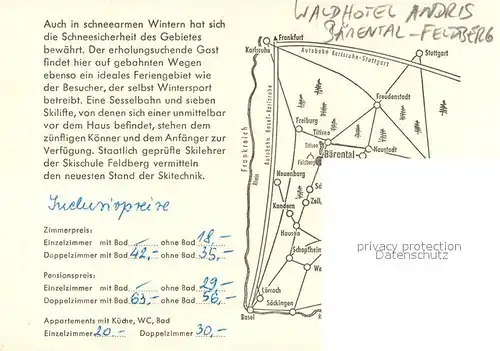 WALDHOTEL ANDRIS
BÄRENTAL-FELDBERG
Auch in schneearmen Wintern hat sich
die Schneesicherheit des Gebietes
bewährt. Der erholungsuchende Gast
findet hier auf gebahnten Wegen
ebenso ein ideales Feriengebiet wie
der Besucher, der selbst Wintersport
betreibt. Eine Sesselbahn und sieben
Skilifte, von denen sich einer unmittelbar
vor dem Haus befindet, stehen dem
zünftigen Könner und dem Anfänger zur
Verfügung. Staatlich geprüfte Skilehrer
der Skischule Feldberg vermitteln
den neuesten Stand der Skitechnik.
Inclusivpreise
Zimmerpreis:
Einzelzimmer mit Bad — ohne Bad 18,-
Doppelzimmer mit Bad 42,- ohne Bad 35,-
Pensionspreis:
Einzelzimmer mit Bad — ohne Bad 29,-
Doppelzimmer mit Bad 63,- ohne Bad 56,-
Appartements mit Küche, WC, Bad
Einzelzimmer 20,- Doppelzimmer 30,-
Frankfurt
Karlsruhe
Autobahn Karlsruhe-Stuttgart
Stuttgart
Freudenstadt
Autobahn Basel-Karlsruhe
Frankreich
Rhein
Freiburg
Titisee
Titisee
Neustadt
Bärental
Feldberg
Neuenburg
Sch
Zell
Kandern
Hausen
Schopfheim
We
Lörrach
Säckingen
Basel
R
privacy protection
Datenschutz